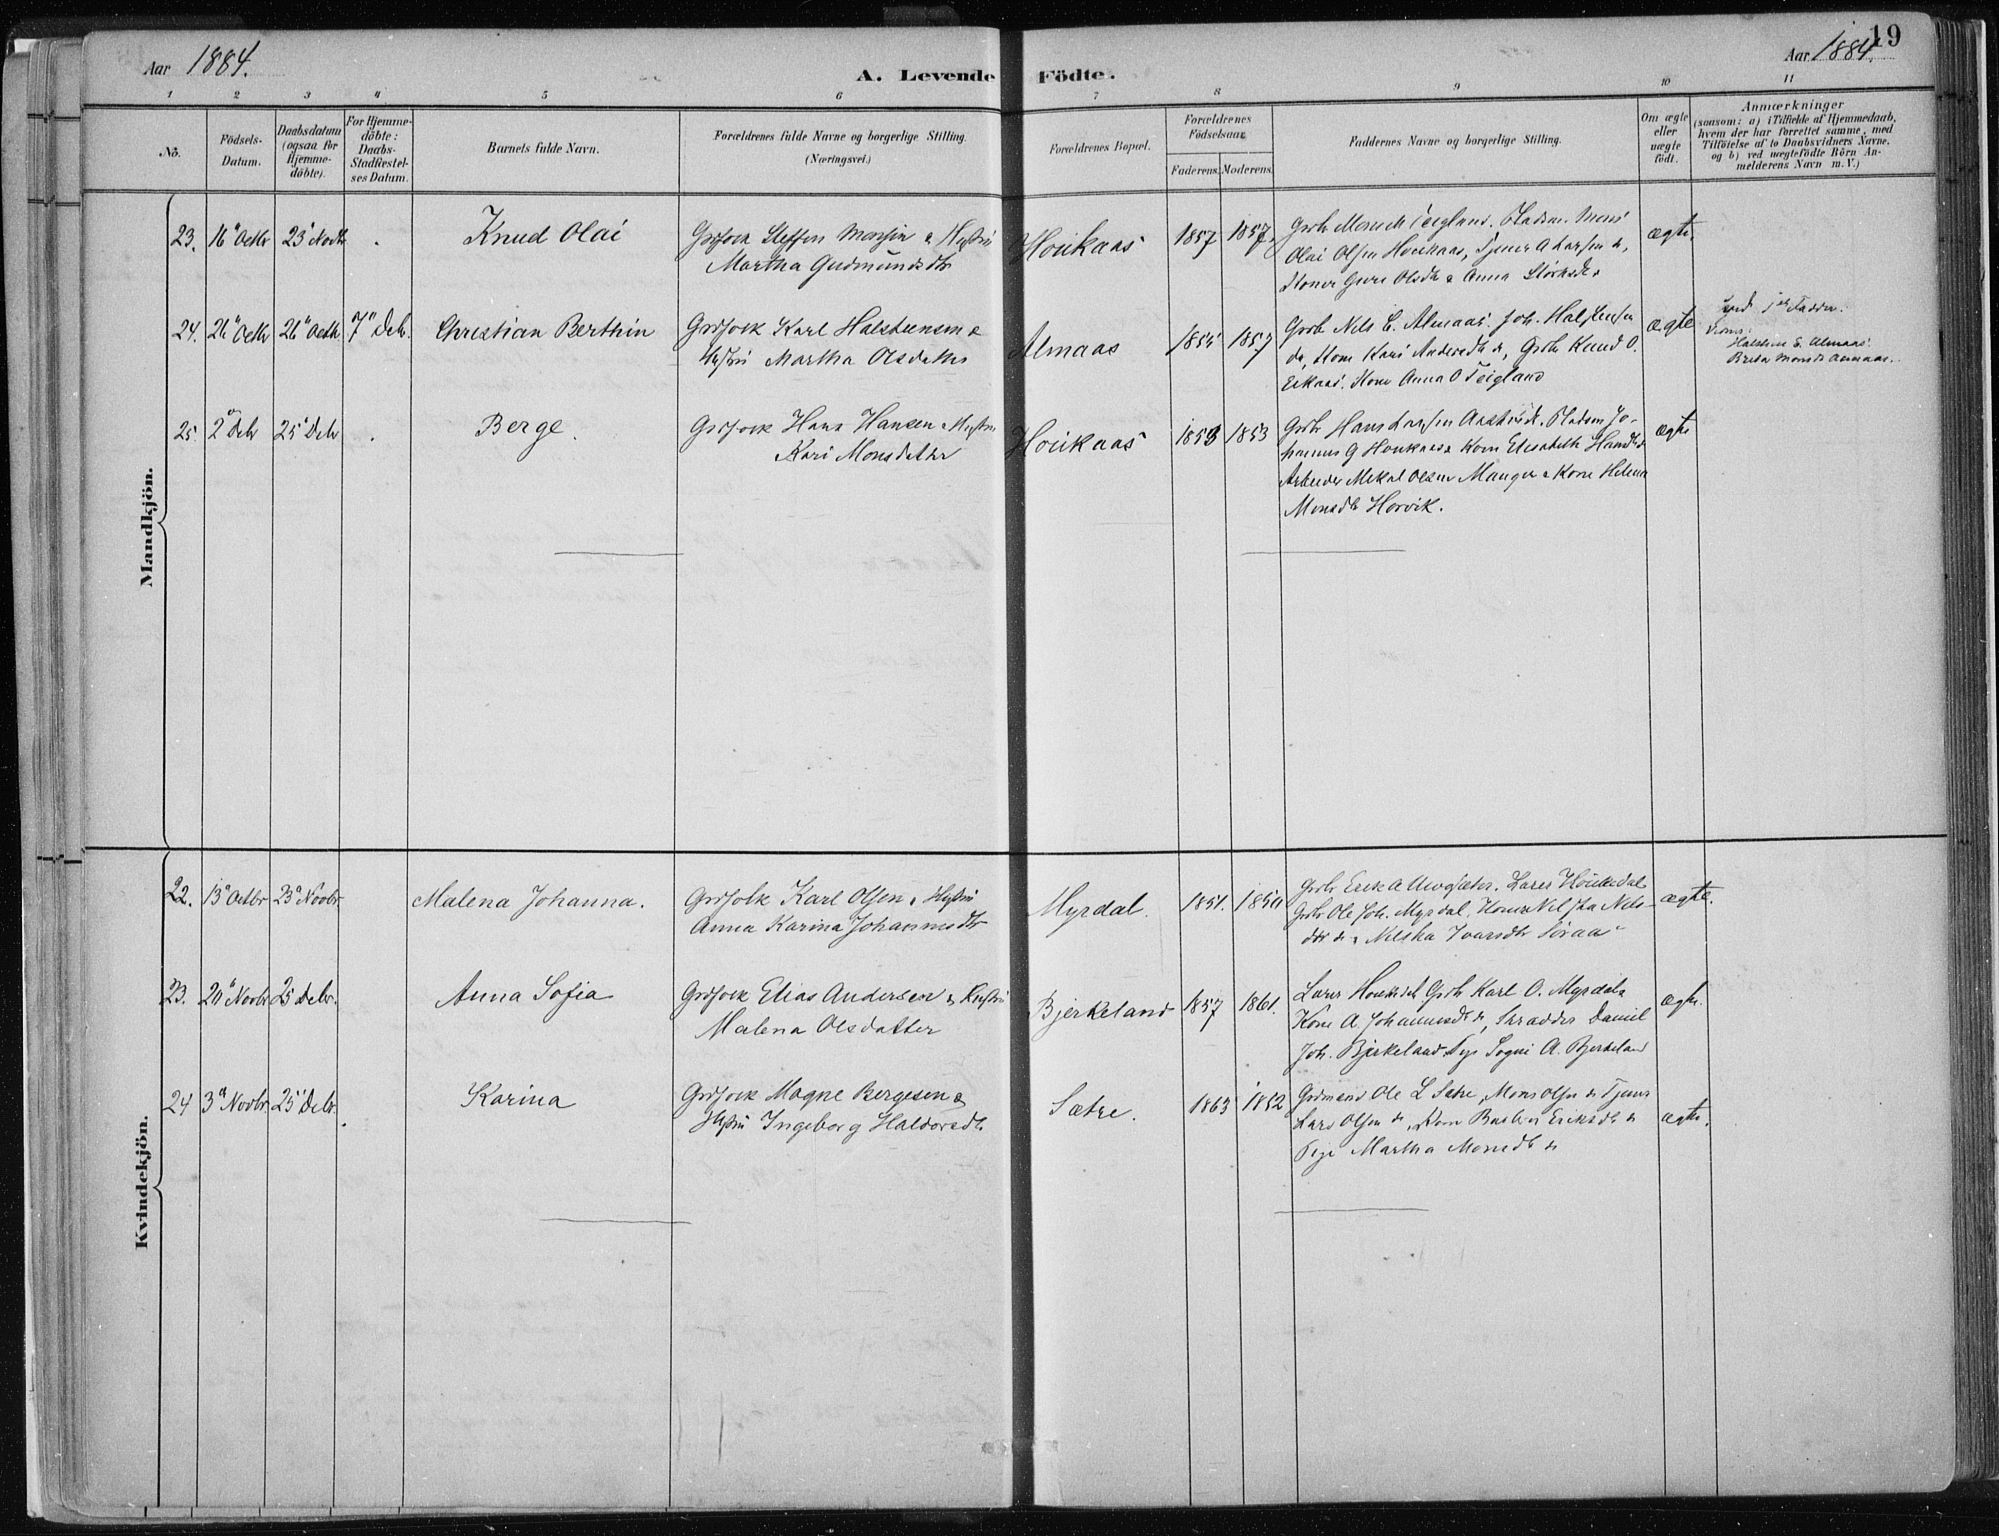 Aar 1884.
A. Levende Födte.
Aar 1884.
19
1 2 3 4 5 6 7 8 9 10 11
No.
Födsels-Datum.
Daabsdatum (ogsaa for Hjemmedöbte).
For Hjemmedöbte: Daabs-Stadfæstelses Datum.
Barnets fulde Navn.
Forældrenes fulde Navne og borgerlige Stilling. (Næringsvei.)
Forældrenes Bopæl.
Forældrenes Födselsaar.
Faderens. Moderens.
Faddernes Navne og borgerlige Stilling.
Om ægte eller uægte födt.
Anmærkninger
(saasom: a) i Tilfælde af Hjemmedaab,
hvem der har forrettet samme, med
Tilföielse af to Daabsvidners Navne,
og b) ved uægtefödte Börn An-
melderens Navn m. V.)
Mandkjön.
23. 16 Octbr 23 Novbr . Knud Olai
Grdfolk Steffen Monsen & Hustru
Martha Gudmundsdtr
Houkaas 1857 1857
Grbr Mons Teigland. Pladsm. Mons
Olai Olsen Houkaas, Tjener A Larsen do,
Koner Guro Olsdtr & Anna
ægte.
24. 26 Octbr 26 Octbr 7 Debr. Christian Berthin
Grdfolk Karl Halsteensen &
Hustru Martha Olsdatter
Almaas 1855 1857
Grbr Nils E. Almaas. Joh. Halsteensen
do, Kone Kari Andersdtr do, Grbr Knud O.
Eikaas. Kone Anna O Teigland
ægte
Fadder.
Halsteen E. Almaas.
Brita Monsdtr Almaas.
25. 2 Debr 25 Debr . Berge.
Grdfolk Hans Hansen & Hustru
Kari Monsdatter
Houkaas 1853 1853
Grbr Hans Larsen. Pladsm Jo-
hannes G Houkaas & Kone Elisabeth Hansdtr do
Arbeider Mikal Olsen Manger & Kone Helena
Monsdtr Horvik.
ægte
Kvindekjön.
22. 13 Octbr 23 Novbr. Malena Johanna.
Grdfolk Karl Olsen & Hustru
Anna Karina Johannesdtr
Myrdal. 1851. 1850
Grbr Erik A. Lærer Houkedal
Grbr Ole Joh. Myrdal. Kone Nilska Nils-
dtr do & Nilska Ivarsdtr Söraas
ægte.
23. 20 Novbr 25 Debr. Anna Sofia
Grdfolk Elias Andersen & Hustru
Malena Olsdatter
Bjerkeland 1857 1861.
Lærer Grbr Karl O. Myrdal &
Kone A. Johannesdtr do, Skrædder Daniel
Joh. Bjerkeland. Pige A. Bjerkeland
ægte.
24 3 Novbr. 25 Debr. Karina
Grdfolk Magne Bergesen &
Hustru Ingeborg Haldorsdtr
Sætre. 1863 1852
Grdmand Ole L Sætre, Mons Olsen do Tjener
Lars Olsen do, Kone Barbro Eriksdtr do
Pige Martha Monsdtr do
ægte.